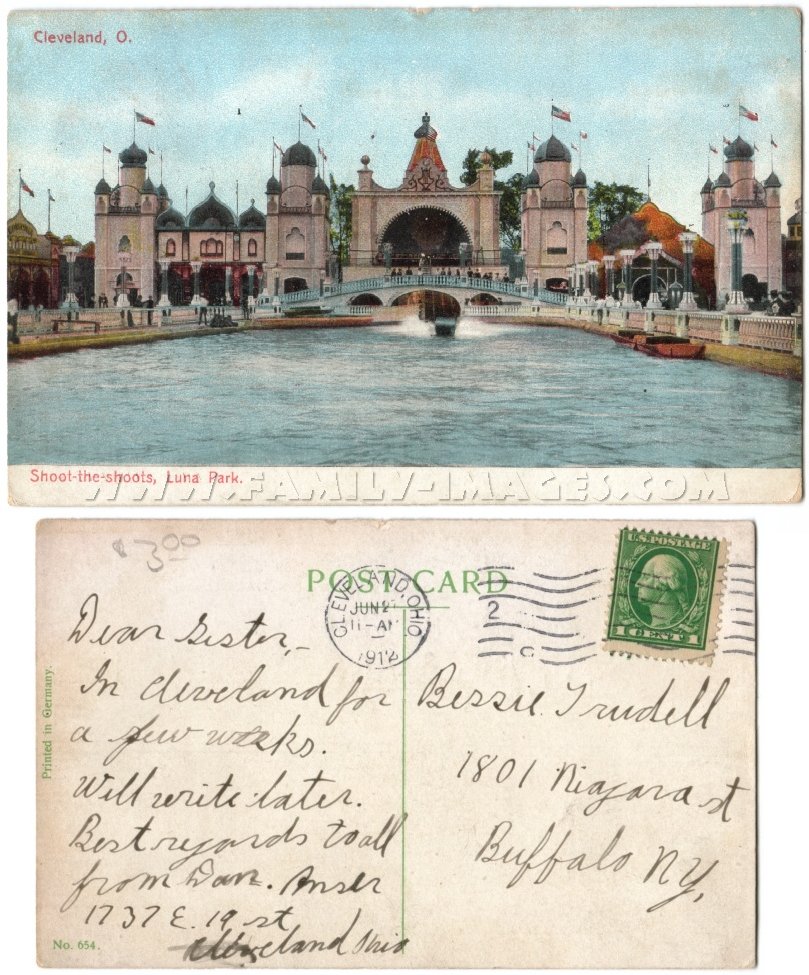 Cleveland, O.
Shoot-the-shoots, Luna Park.
WWW.FAMILY-IMAGES.COM
$3.00
POST CARD
CLEVELAND, OHIO
JUN 2
11-AM
1912
2
C
U.S. POSTAGE
1 CENT 1
Printed in Germany.
Dear Sister,-
In Cleveland for
a few weeks.
Will write later.
Best regards to all
from Dan. Anser
1737 E. 19 st
Cleveland Ohio
Bessie Trudell
1801 Niagara st
Buffalo NY,
No. 654.